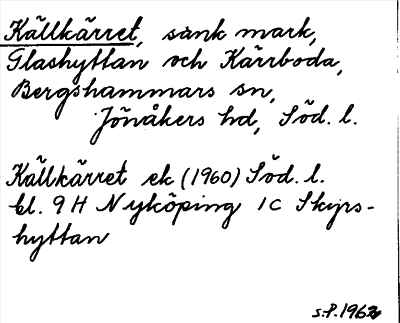 Källkärret, sank mark,
Glashyttan och Kärrboda,
Bergshammars sn,
Jönåkers hd, Söd. l.
Källkärret ek (1960) Söd. l.
bl. 9 H Nyköping 1 C Skyrs-
hyttan
S.P. 1962